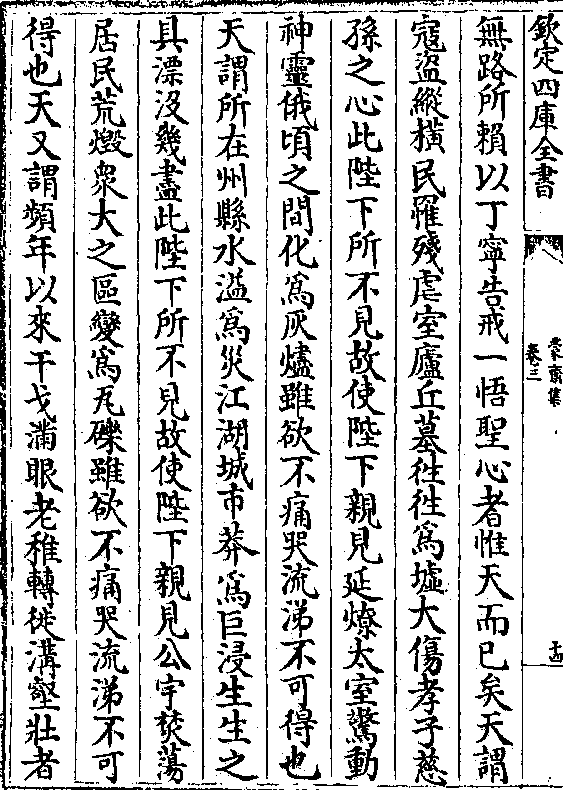 欽定四庫全書
蒙齋集
卷三
十四
無路所賴以丁寧告戒一悟聖心者惟天而已矣天謂
宼盜縱横民罹殘虐室廬丘墓徃徃爲墟大傷孝子慈
孫之心此陛下所不見故使陛下親見延燎太室驚動
神靈俄頃之間化爲灰燼雖欲不痛哭流涕不可得也
天謂所在州縣水溢爲災江湖城市莽爲巨浸生生之
具漂沒幾盡此陛下所不見故使陛下親見公宇焚蕩
居民荒燬衆大之區變爲瓦礫雖欲不痛哭流涕不可
得也天又謂頻年以來干戈滿眼老稚轉徙溝壑壯者